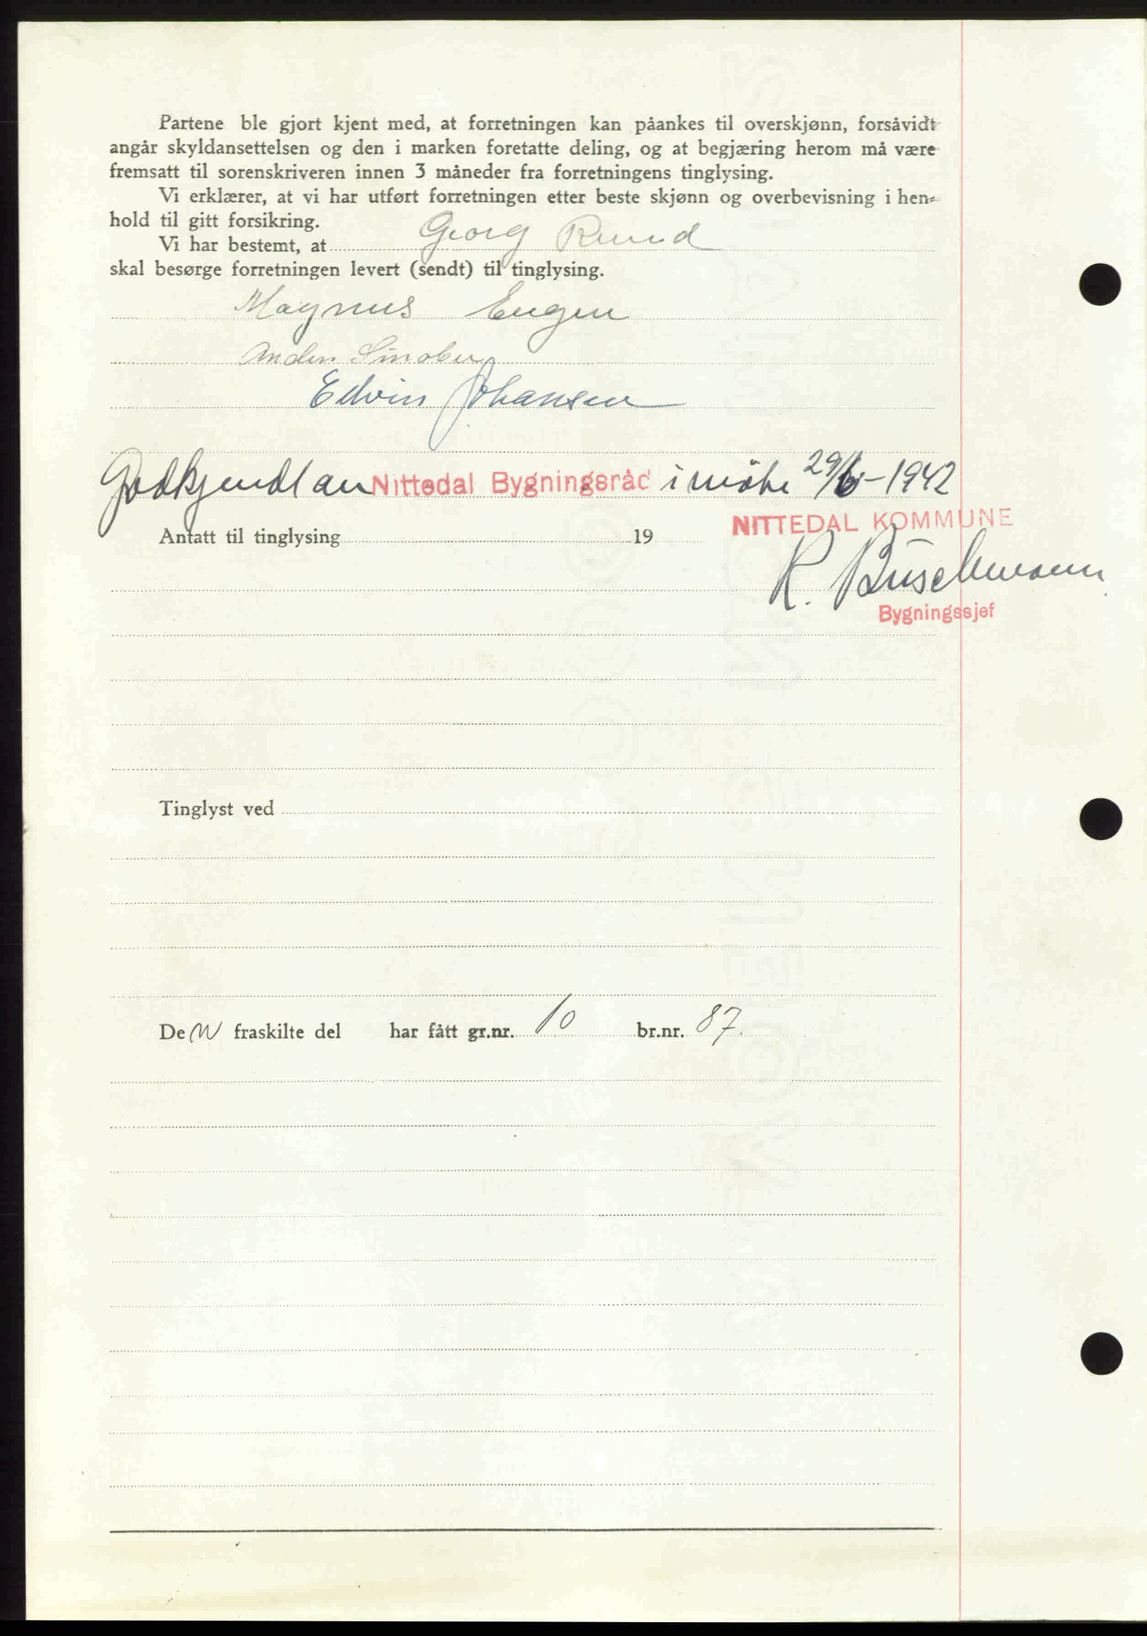 Partene ble gjort kjent med, at forretningen kan påankes til overskjønn, forsåvidt
angår skyldansettelsen og den i marken foretatte deling, og at begjæring herom må være
fremsatt til sorenskriveren innen 3 måneder fra forretningens tinglysing.
Vi erklærer, at vi har utført forretningen etter beste skjønn og overbevisning i hen-
hold til gitt forsikring.
Vi har bestemt, at Georg Ruud
skal besørge forretningen levert (sendt) til tinglysing.
Magnus Engen
Anders Sinober
Edvin Johansen
Godkjendt av Nittedal Bygningsråd i møte 29/6-1942
NITTEDAL KOMMUNE
Antatt til tinglysing 19
R. Buschmann
Bygningssjef
Tinglyst ved
Den fraskilte del har fått gr.nr. 10 br.nr. 87.